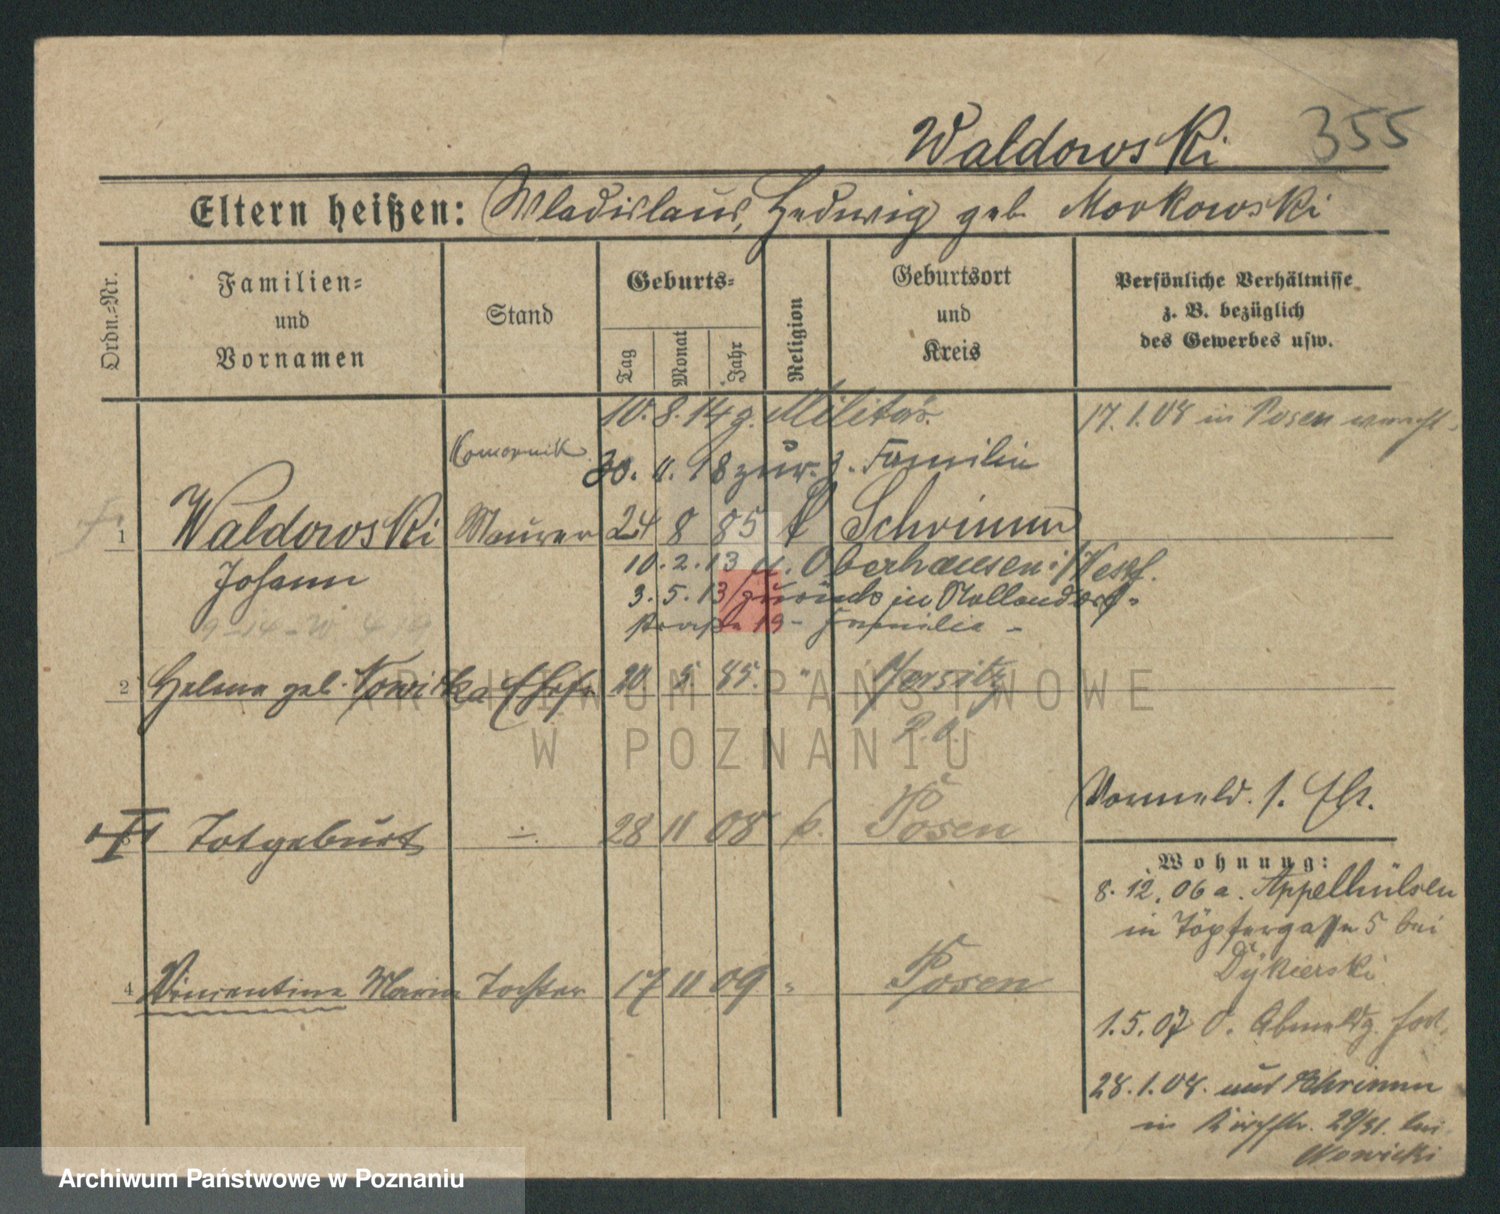 355
Waldowski
Eltern heißen: Wladislaus, Hedwig geb Morkowski
Ordn.-Nr.
Familien-
und
Vornamen
Stand
Geburts-
Tag
Monat
Jahr
Religion
Geburtsort
und
Kreis
Persönliche Verhältnisse
z. B. bezüglich
des Gewerbes usw.
10. 8. 14 z. Militär.
17. 1. 08 in Posen
Komornik
30. 11. 18 zur. z. Familie
1 Waldowski Maurer 24 8 85 k Schrimm
Johann
10. 2. 13 n. Oberhausen i/Westf.
3. 5. 13 zurück in Hollendorf-
straße 19 - Familie -
2 Helene geb. Nowicka Ehefr 20 5 85. " Jersitz
P. O.
3 Totgeburt ÷ 28 11 08 k. Posen
Vormeld. s. Ehr.
4 Vincentine Maria Tochter 17 11 09 " Posen
Wohnung:
8. 12. 06 a. Appelhülsen
in Töpfergasse 5 bei
Dykierski
1. 5. 07 o. Abmeldg. fort.
28. 1. 08. aus Schrimm
in 29/31. bei
Nowicki
ARCHIWUM PAŃSTWOWE
W POZNANIU
Archiwum Państwowe w Poznaniu